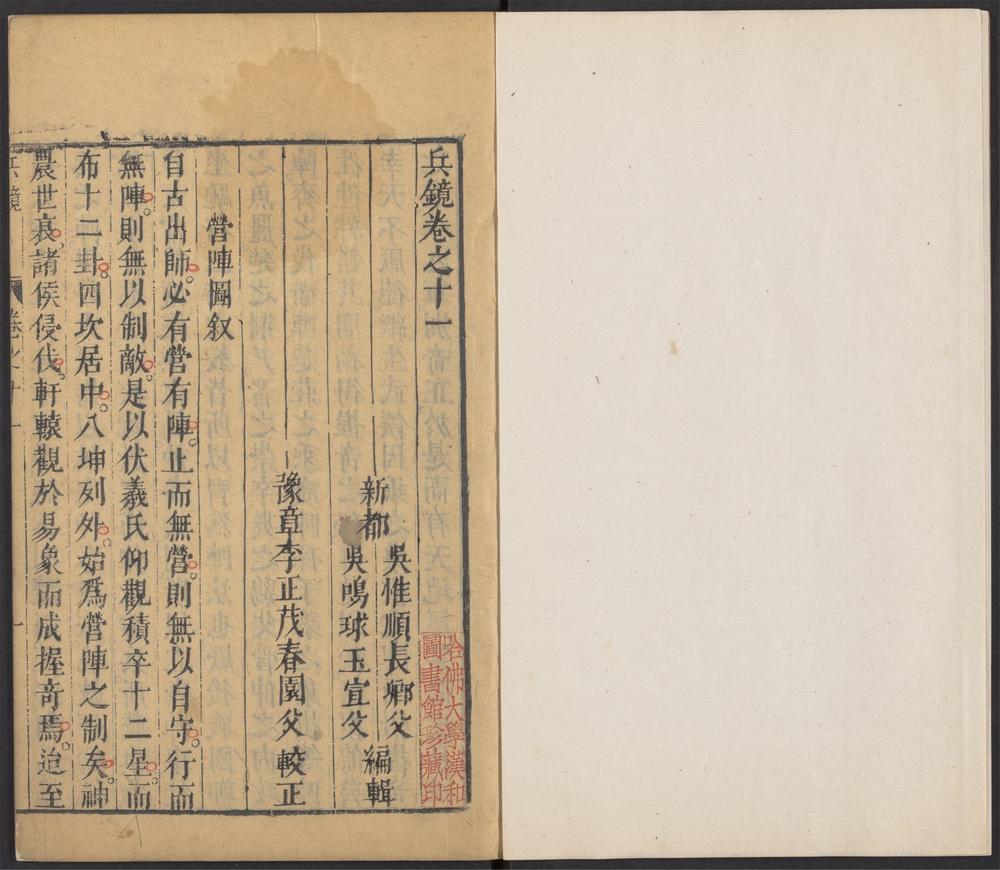 兵鏡卷之十一
新都
吳惟順長卿父
吳鳴球玉宣父
編輯
豫章李正茂春園父較正
營陣圖叙
自古出師。必有營有陣。止而無營。則無以自守。行而
無陣。則無以制敵。是以伏羲氏仰觀積卒十二星。而
布十二卦。四坎居中。八坤列外。始爲營陣之制矣。神
農世衰。諸侯侵伐。軒轅觀於易象而成握奇焉。迨至
兵鏡
卷之十一
一
哈佛大學漢和
圖書館珍藏印